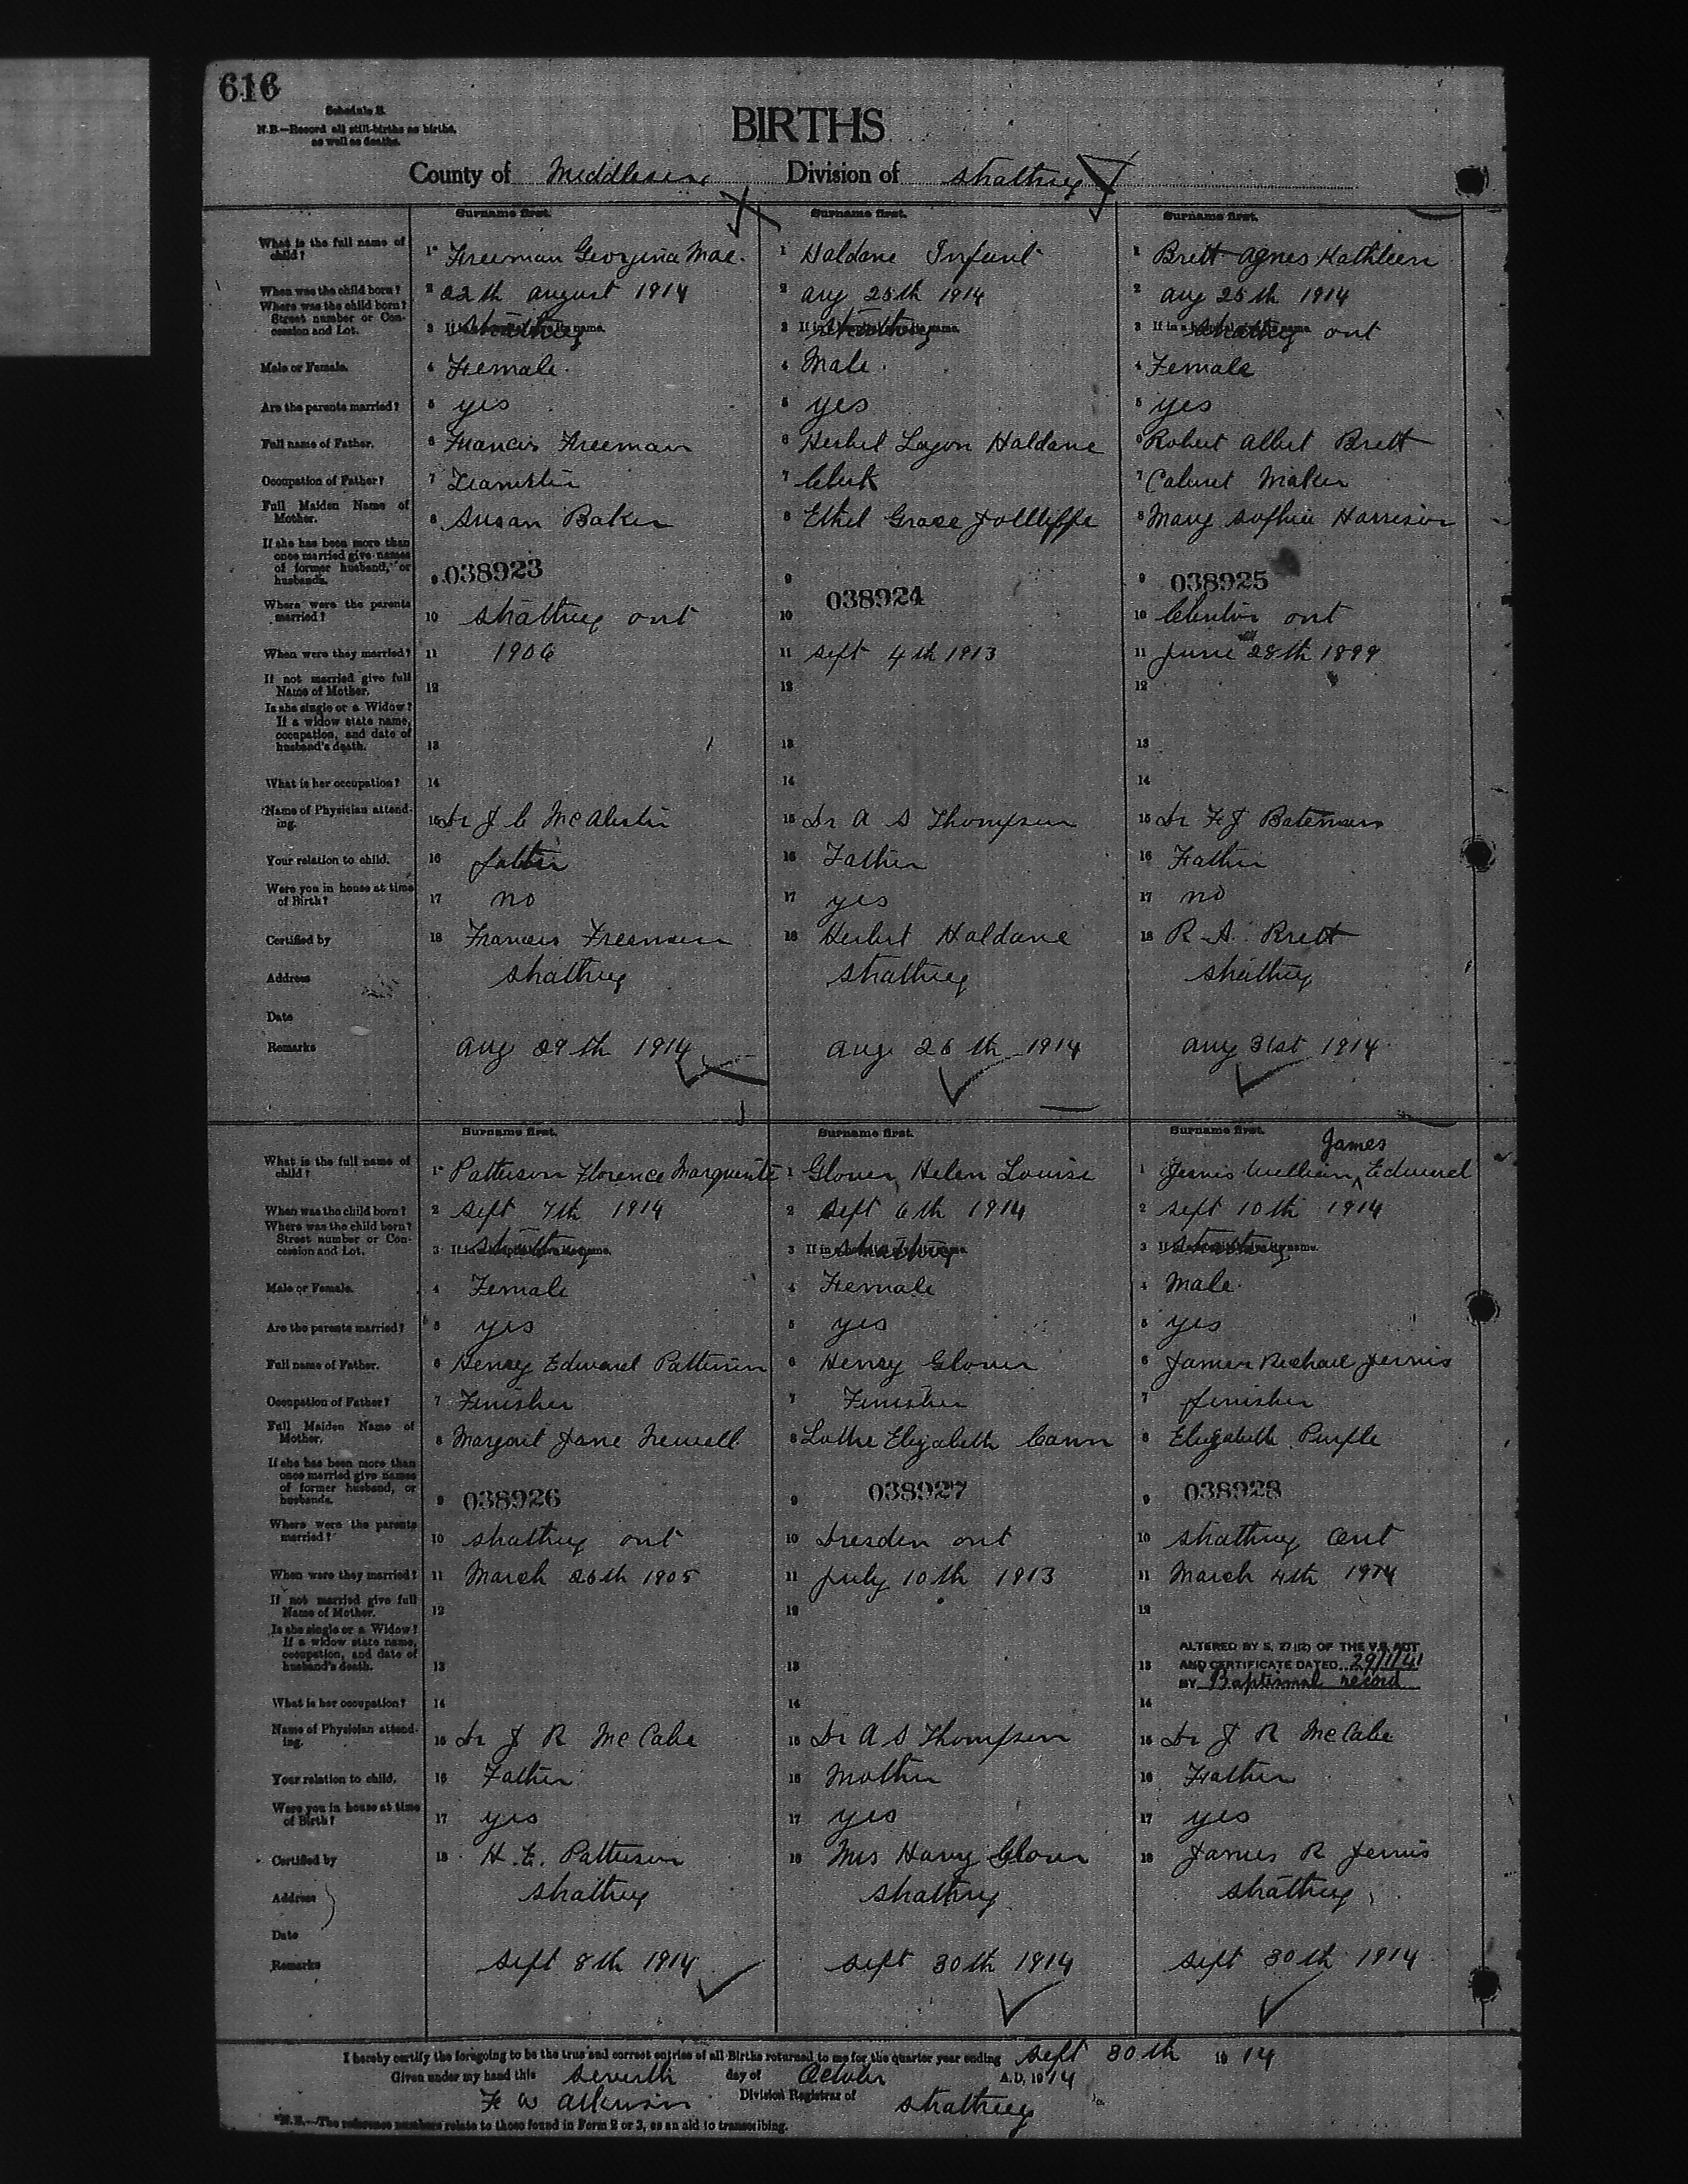 616
Schedule B.
N.B.—Record all still-births as births, as well as deaths.
BIRTHS
County of Middlesex Division of Strathroy
Surname first. Surname first. Surname first.
What is the full name of child? 1* Freeman Georgina Mae. 1 Haldane Infant 1 Brett Agnes Kathleen
When was the child born? 2 22th august 1914 2 aug 25th 1914 2 aug 25th 1914
Where was the child born? Street number or Concession and Lot. 3 Strathroy 3 Strathroy 3 Strathroy ont
Male or Female. 4 Female. 4 Male. 4 Female
Are the parents married? 5 yes 5 yes 5 yes
Full name of Father. 6 Francis Freeman 6 Haldane 6 Robert Albert Brett
Occupation of Father? 7 Teamster 7 Clerk 7 Cabinet Maker
Full Maiden Name of Mother. 8 Susan Baker 8 Ethel Grace Jolliffe 8 Mary Sophia Harrison
If she has been more than once married give names of former husband, or husbands. 9 038923 9 038924 9 038925
Where were the parents married? 10 Strathroy ont 10 10 Clinton ont
When were they married? 11 1906 11 Sept 4th 1913 11 June 28th 1899
If not married give full Name of Mother. 12 12 12
Is she single or a Widow? If a widow state name, occupation, and date of husband's death. 13 13 13
What is her occupation? 14 14 14
Name of Physician attending. 15 Dr J C 15 Dr A S Thompson 15 Dr F J Bateman
Your relation to child. 16 father 16 Father 16 Father
Were you in house at time of Birth? 17 no 17 yes 17 no
Certified by 18 Francis Freeman 18 Herbert Haldane 18 R. A. Brett
Address Strathroy Strathroy Strathroy
Date
Remarks aug 29th 1914 aug 26th 1914 aug 31st 1914
Surname first. Surname first. Surname first.
James
What is the full name of child? 1* Patterson Florence Marguerite 1 Glover, Helen Louise 1 Jervis William Edward
When was the child born? 2 Sept 7th 1914 2 Sept 6th 1914 2 Sept 10th 1914
Where was the child born? Street number or Concession and Lot. 3 Strathroy 3 Strathroy 3 Strathroy
Male or Female. 4 Female 4 Female 4 Male.
Are the parents married? 5 yes 5 yes 5 yes
Full name of Father. 6 Henry Edward Patterson 6 Henry Glover 6 James Richard Jervis
Occupation of Father? 7 Finisher 7 Finisher 7 finisher
Full Maiden Name of Mother. 8 Margaret Jane Newell 8 Elizabeth Cann 8 Elizabeth Purple
If she has been more than once married give names of former husband, or husbands. 9 038926 9 038927 9 038928
Where were the parents married? 10 Strathroy ont 10 Dresden ont 10 Strathroy Ont
When were they married? 11 March 26th 1905 11 July 10th 1913 11 March 4th 1914
If not married give full Name of Mother. 12 12 12
Is she single or a Widow? If a widow state name, occupation, and date of husband's death. 13 13 13 ALTERED BY S. 27 (2) OF THE V.S. ACT
AND CERTIFICATE DATED 29/1/41
BY Baptismal record
What is her occupation? 14 14 14
Name of Physician attending. 15 Dr J R McCabe 15 Dr A S Thompson 15 Dr J R McCabe
Your relation to child. 16 Father 16 Mother 16 Father
Were you in house at time of Birth? 17 yes 17 yes 17 yes
Certified by 18 H. E. Patterson 18 Mrs Harry Glover 18 James R Jervis
Address Strathroy Strathroy Strathroy
Date
Remarks Sept 8th 1914 Sept 30th 1914 Sept 30th 1914
I hereby certify the foregoing to be the true and correct entries of all Births returned to me for the quarter year ending Sept 30th 1914
Given under my hand this seventh day of October A.D. 1914
F W Atkinson Division Registrar of Strathroy
*N.B.—The reference numbers relate to those found in Form 2 or 3, as an aid to transcribing.